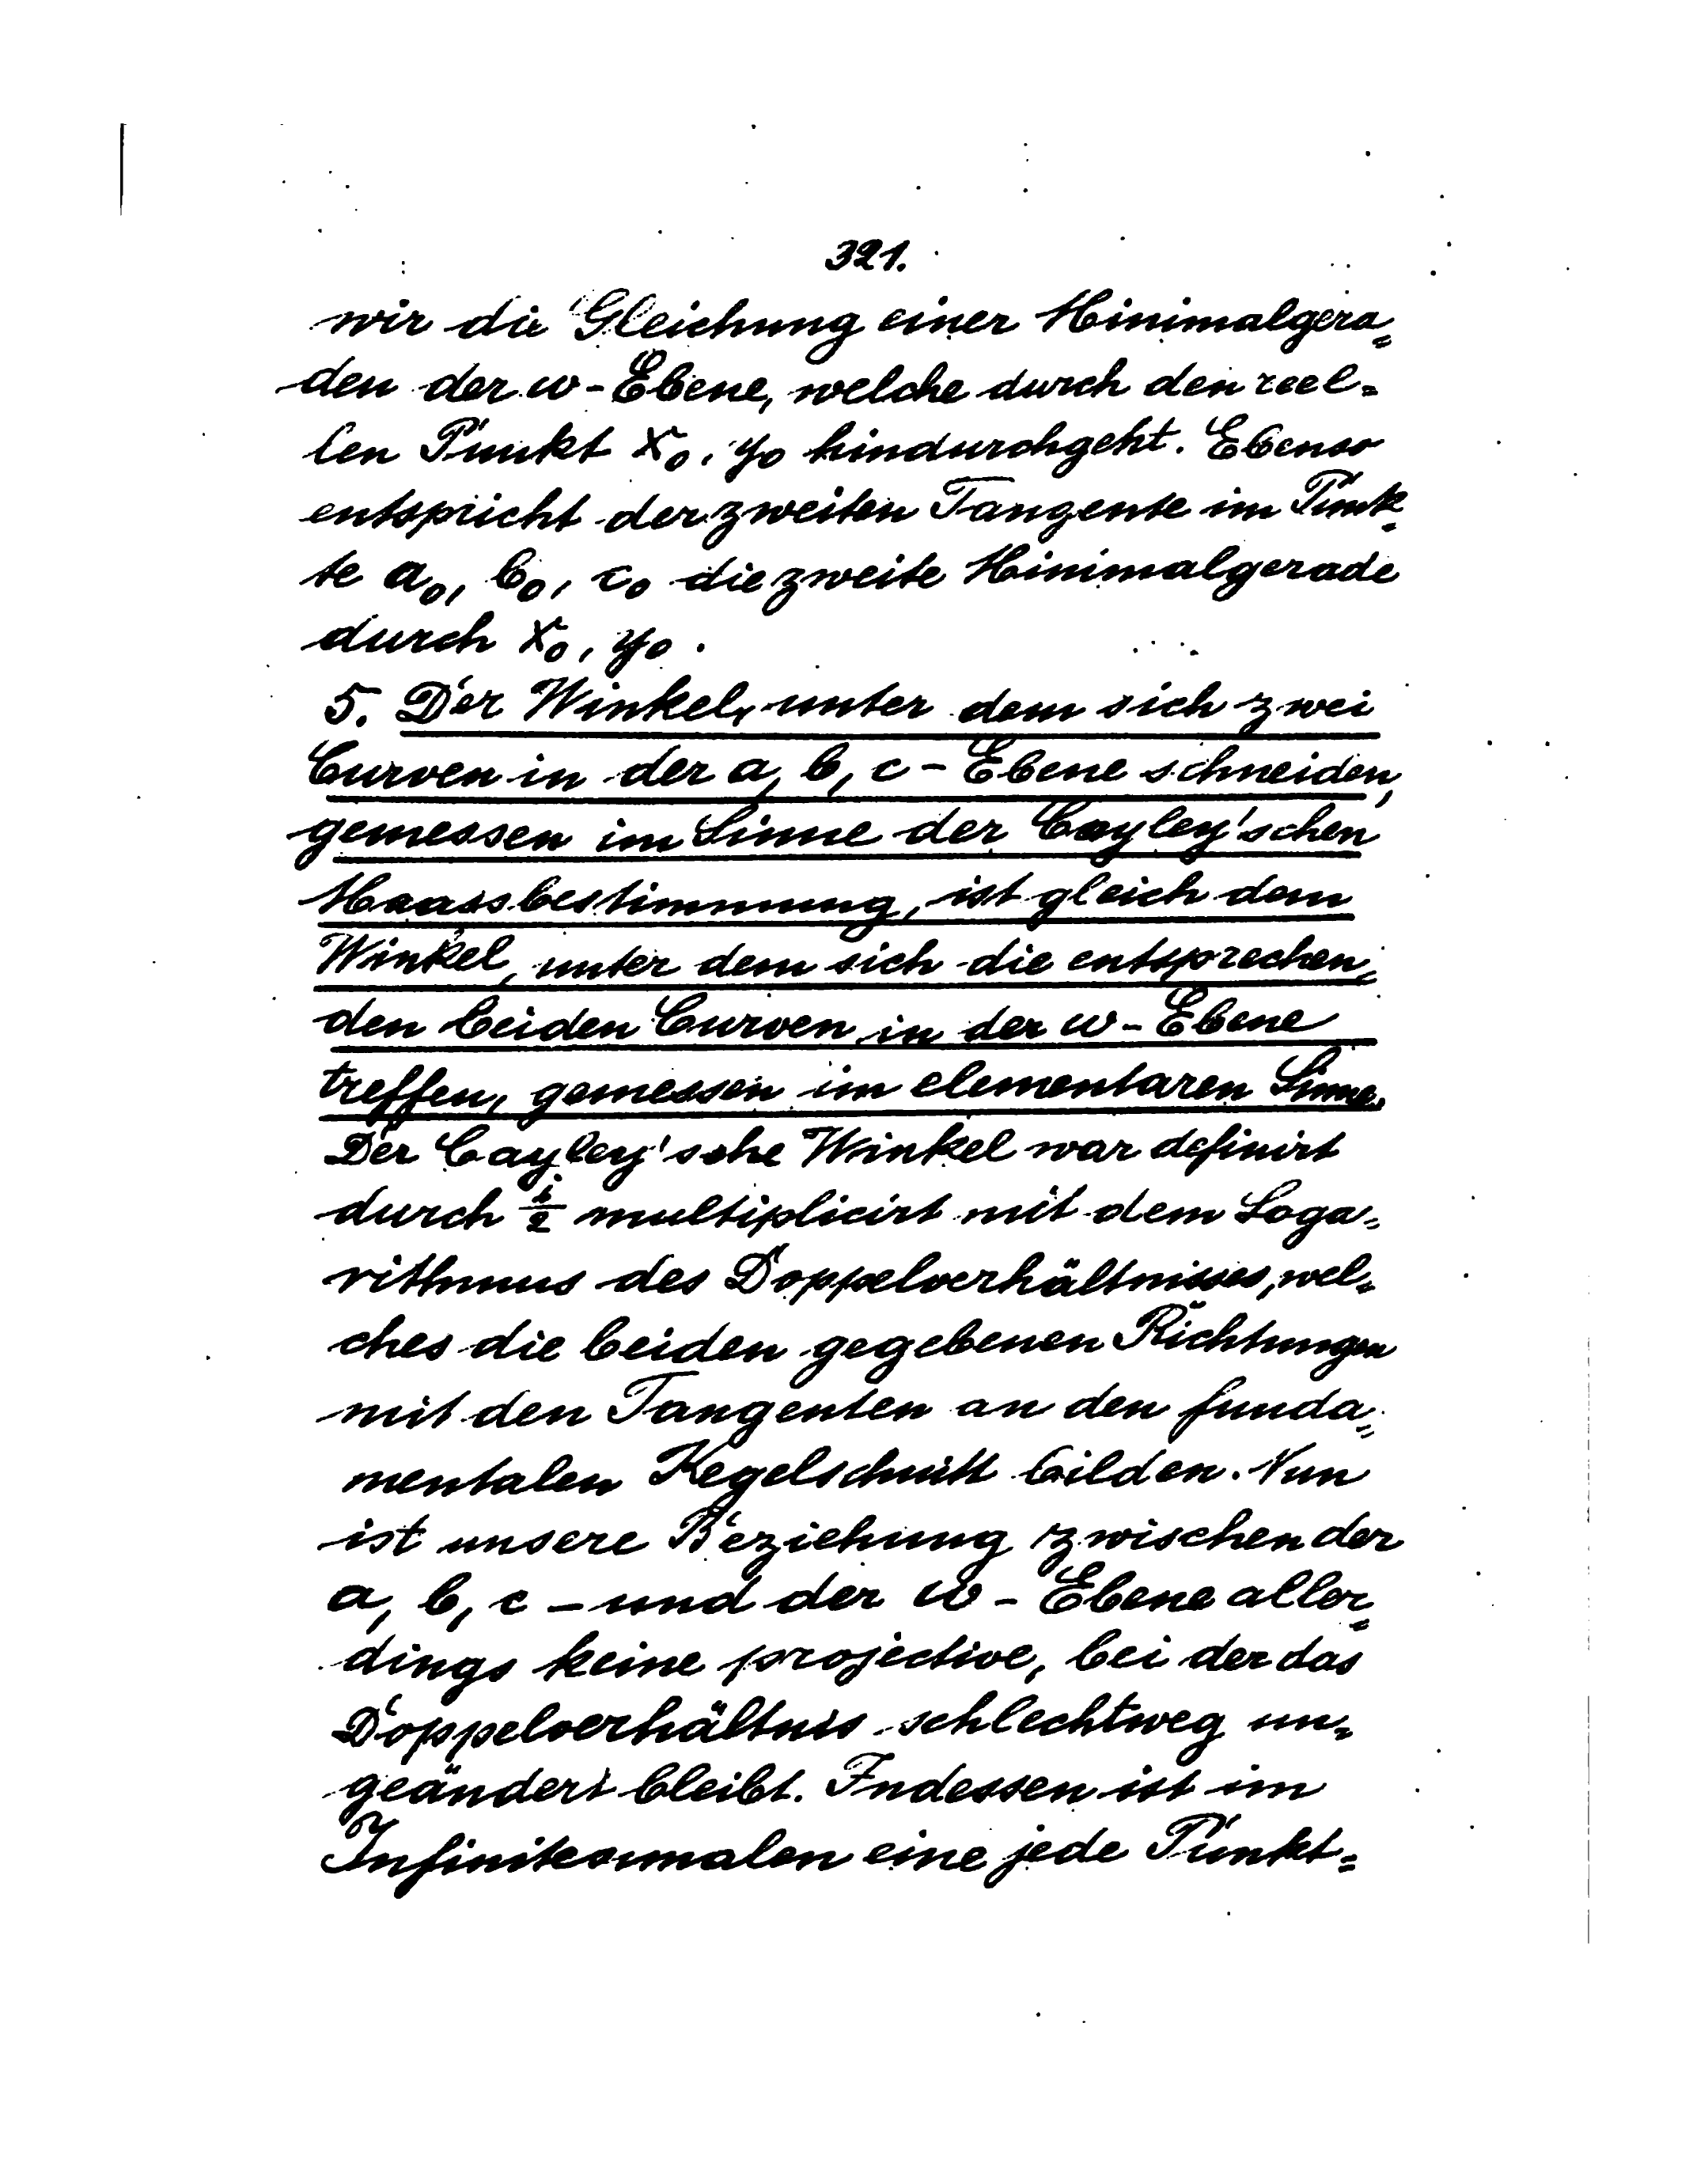 321.
wir die Gleichung einer Minimalgera-
den der w-Ebene, welche durch den reel-
len Punkt x₀, y₀ hindurchgeht. Ebenso
entspricht der zweiten Tangente im Punk-
te a₀, b₀, c₀ die zweite Minimalgerade
durch x₀, y₀.
5. Der Winkel, unter dem sich zwei
Curven in der a, b, c-Ebene schneiden,
gemessen im Sinne der Cayley'schen
Maassbestimmung, ist gleich dem
Winkel, unter dem sich die entsprechen-
den beiden Curven in der w-Ebene
treffen, gemessen im elementaren Sinne.
Der Cayley'sche Winkel war definirt
durch i/2 multiplicirt mit dem Loga-
rithmus des Doppelverhältnisses, wel-
ches die beiden gegebenen Richtungen
mit den Tangenten an den funda-
mentalen Kegelschnitt bilden. Nun
ist unsere Beziehung zwischen der
a, b, c - und der w-Ebene aller-
dings keine projective, bei der das
Doppelverhältnis schlechtweg un-
geändert bleibt. Indessen ist im
Infinitesimalen eine jede Punkt-